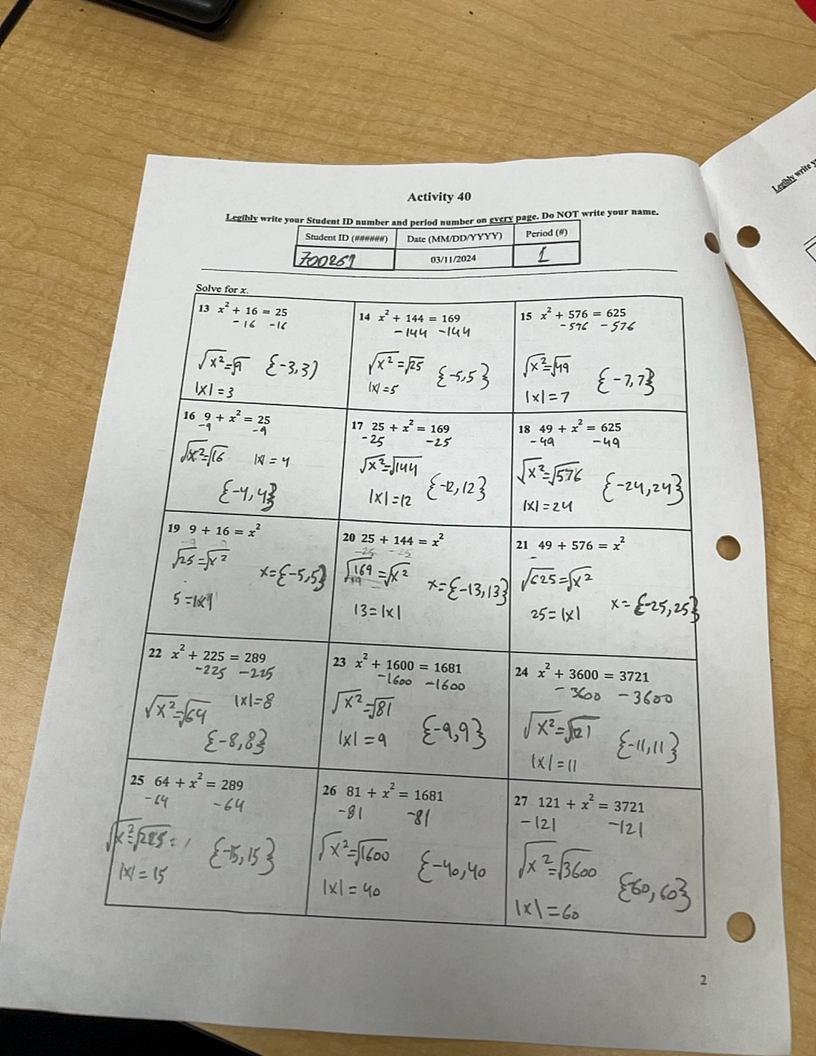 Activity 40
Legibly write your Student ID number and period number on every page. Do NOT write your name.
Student ID (######) Date (MM/DD/YYYY) Period (#)
700259 03/11/2024 1
Solve for x.
13 x² + 16 = 25
-16 -16
√x²=√9 {-3,3)
|x|=3
14 x² + 144 = 169
-144 -144
√x²=√25 {-5,5}
|x|=5
15 x² + 576 = 625
-576 -576
√x²=√49 {-7,7}
|x|=7
16 9 + x² = 25
-9 -9
√x²=√16 |x|=4
{-4,4}
17 25 + x² = 169
-25 -25
√x²=√144 {-12,12}
|x|=12
18 49 + x² = 625
-49 -49
√x²=√576 {-24,24}
|x|=24
19 9 + 16 = x²
√25=√x² x={-5,5}
5=|x|
20 25 + 144 = x²
-25 -25
√169=√x² x={-13,13}
13=|x|
21 49 + 576 = x²
√625=√x²
25=|x| x={-25,25}
22 x² + 225 = 289
-225 -225
√x²=√64 |x|=8
{-8,8}
23 x² + 1600 = 1681
-1600 -1600
√x²=√81 {-9,9}
|x|=9
24 x² + 3600 = 3721
-3600 -3600
√x²=√121 {-11,11}
|x|=11
25 64 + x² = 289
-64 -64
√x²=√225 = {-15,15}
|x|=15
26 81 + x² = 1681
-81 -81
√x²=√1600 {-40,40
|x|=40
27 121 + x² = 3721
-121 -121
√x²=√3600 {-60,60}
|x|=60
2
Legibly write